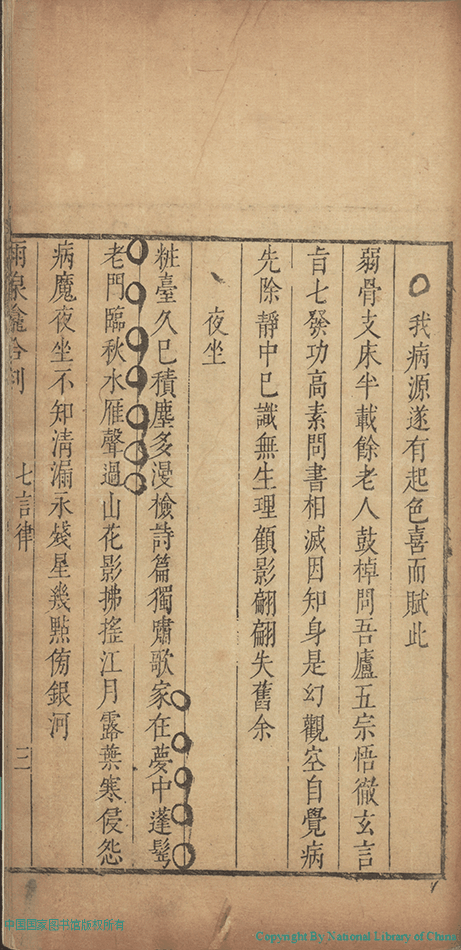 我病源遂有起色喜而賦此
弱骨支床半載餘老人鼓棹問吾廬五宗悟徹玄言
旨七發功高素問書相滅因知身是幻觀空自覺病
先除靜中已識無生理顧影翩翩失舊余
夜坐
粧臺久已積塵多漫檢詩篇獨嘯歌家在夢中蓬鬢
老門臨秋水雁聲過山花影拂搖江月露葉寒侵怨
病魔夜坐不知清漏永殘星幾點傍銀河
雨泉龕合刻
七言律
三
中国国家图书馆版权所有
Copyright By National Library of China